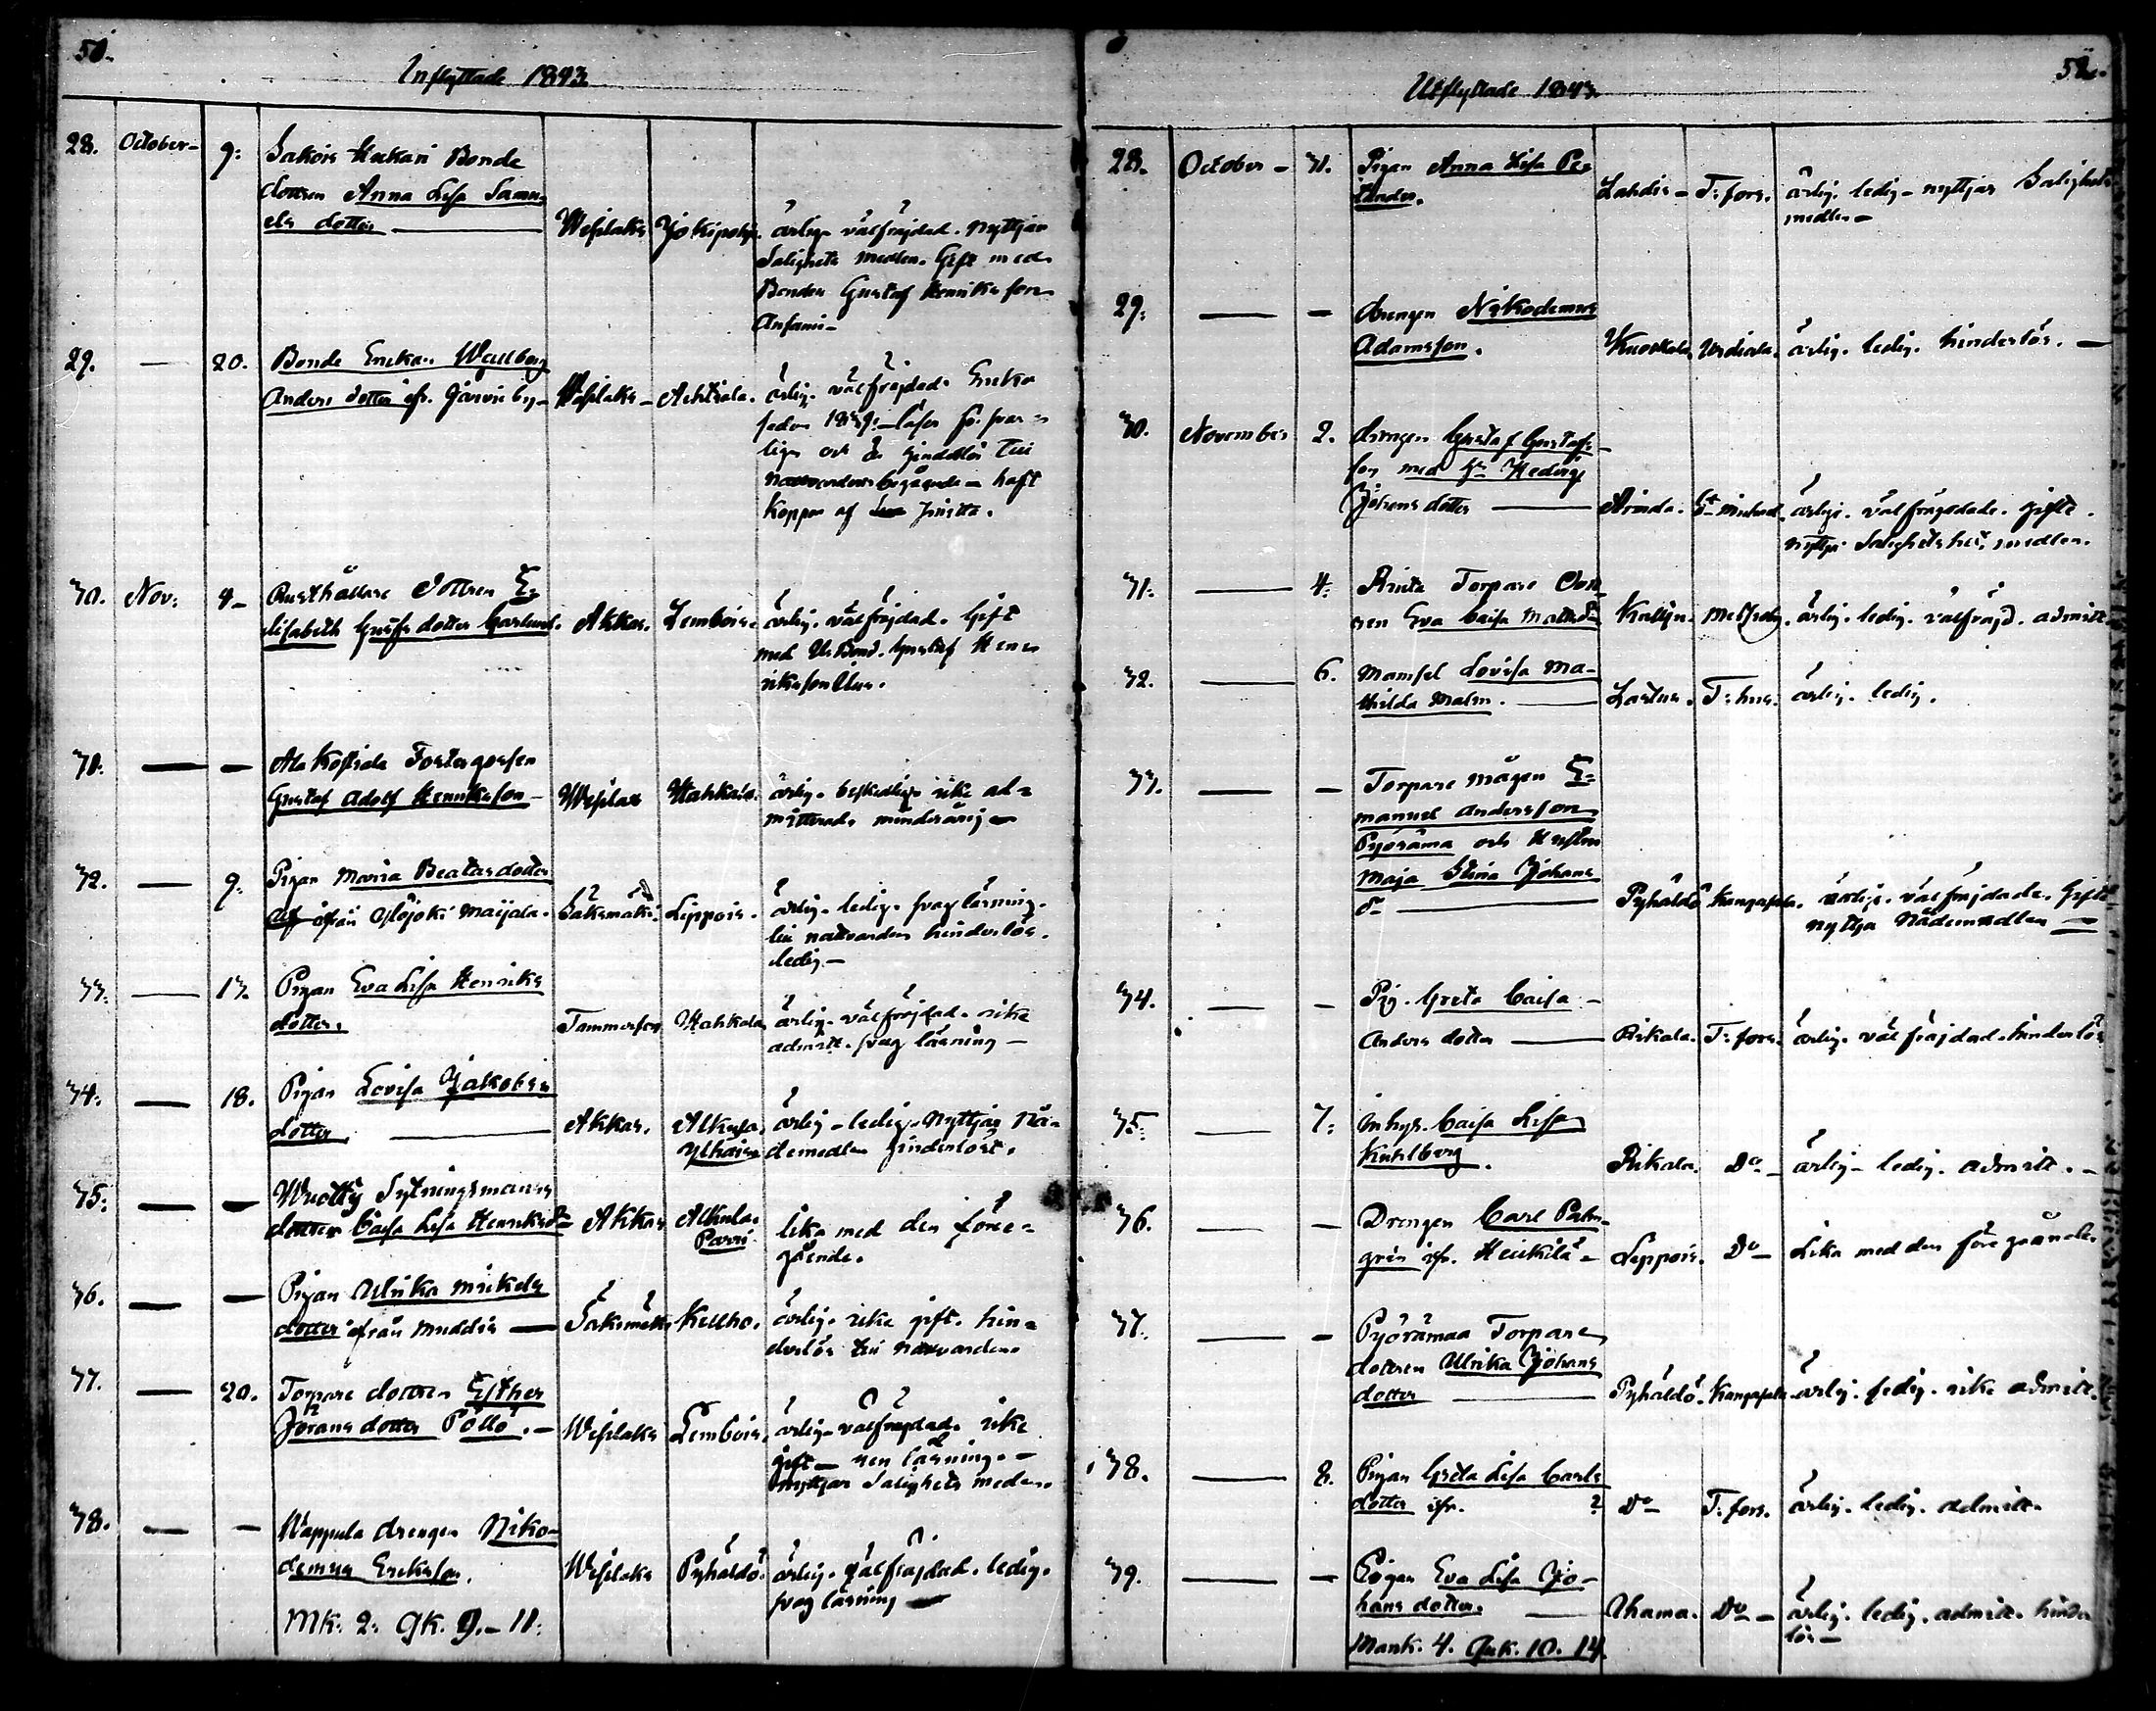 50.
Inflyttade 1843
28. October- 9: Sakois Kukari Bonde
dottren Anna Lisa Samu-
els dotter Wesilaks Jokipohj. ärlig. välfräjdad. Nyttjar
Salighets medlen. Gift med
Bonden Gustaf Henriksson
Anfami-
29. — 20. Bonde Enckan Wallberg
Anders dotter ifr. Järvis by- Wesilaks- Achtiala. ärlig. välfräjdad. Encka
sedan 1839:- läser försvar-
ligen och är hinderlös till
nattvardens begående - haft
koppor af Jinitta.
30. Nov: 4- Rusthållare dottren E-
lisabeth Gustfs dotter Garlund. Akkas. Lembois. ärlig. välfräjdad. Gift
med Bond. Gustaf Hen-
riksson Uus.
31. — — Ala Koskela Fostergossen
Gustaf Adolf Henriksson- Wesilax Hahkala. ärlig. beskedlig icke ad-
mitterad. minderårig-
32. — 9. Pigan Maria Beatasdotter
ifrån Ylöjoki Maijala. Sääksmäki. Leppois. ärlig. ledig. svag läsning.
till nattvarden hinderlös.
ledig-
33. — 13. Pigan Eva Lisa Henriks
dotter. Tammerfors Hahkala ärlig. välfräjdad. icke
admitt. svag läsning-
34. — 18. Pigan Lovisa Jakobs
dotter Akkas. Alkula Ylhäisi ärlig- ledig. Nyttjar Nå-
demedlen hinderlöst.
35. — — Wuolty Sytningsmans
dotter Caisa Lisa Henriksdr Akkas Alkula. Parri. lika med den före-
gående.
36. — — Pigan Ulrika Mickels
dotter ifrån Muddis — Sääksmäki Kulho. ärlig. icke gift. hin-
derlös till nattvarden.
37. — 20. Torpare dottren Esther
Jörans dotter Pöllö.- Wesilaks Lembois. ärlig- välfräjdad. icke
gift- ren läsning.-
nyttjar Salighets medlen.
38. — — Wäppula drengen Niko-
demus Ericksson. Wesilaks Pyhäldö. ärlig. välfräjdad. ledig.
svag läsning-
Mk. 2. Qk. 9.- 11:
Utflyttade 1843.
28. October- 31. Pigan Anna Lisa Pe-
lander. Lahdis- T:fors. ärlig. ledig- nyttjar Salighets
medlen-
29. — — drengen Nikodemus
Adamsson. Knuckala Urdiala. ärlig. ledig. hinderlös.-
30. November 2. drengen Gustaf Gustafs-
son med Hr Hedvig
Johans dotter — Arinda. St. Michael. ärlige. välfrägdade. gifte.
nyttja Salighetshetsmedlen.
31. — 4. Rinta Torpare dott-
ren Eva Caisa Mattsdr Kallijn. Messuby. ärlig. ledig. välfräjd. admitt
32. — 6. Mamsel Lovisa Ma-
thilda Malm. Lastus. T:hus. ärlig. ledig.
33. — — Torpare mågen E-
manuel Andersson
Pyörämä och Hustrun
Maja Stina Johans
dr — Pyhäldö Kangasala. ärlige. välfräjdade. Gifte
nyttja Nådemedlen
34. — — Pig. Greta Caisa -
Anders dotter — Pirkala. T:fors. ärlig. välfräjdad. hinderlös
35. — 7. inhys. Caisa Lisa
Kuhlberg. Pirkala. Do- ärlig- ledig. admitt.-
36. — — Drengen Carl Palm-
grén ifr. Heickilä- Leppois. Do- Lika med den föregående
37. — — Pyörämaa Torpare
dottren Ulrika Johans
dotter — Pyhäldö. Kangasala ärlig. ledig. icke admitt.
38. — 8. Pigan Greta Lisa Carls
dotter ifr. ? Do- T:fors. ärlig. ledig. admitt.
39. — — Pigan Eva Lisa Jo-
hans dotter. Uhama. Do- ärlig. ledig. admitt. hinder
lös-
Mank. 4. Quk. 10. 14.